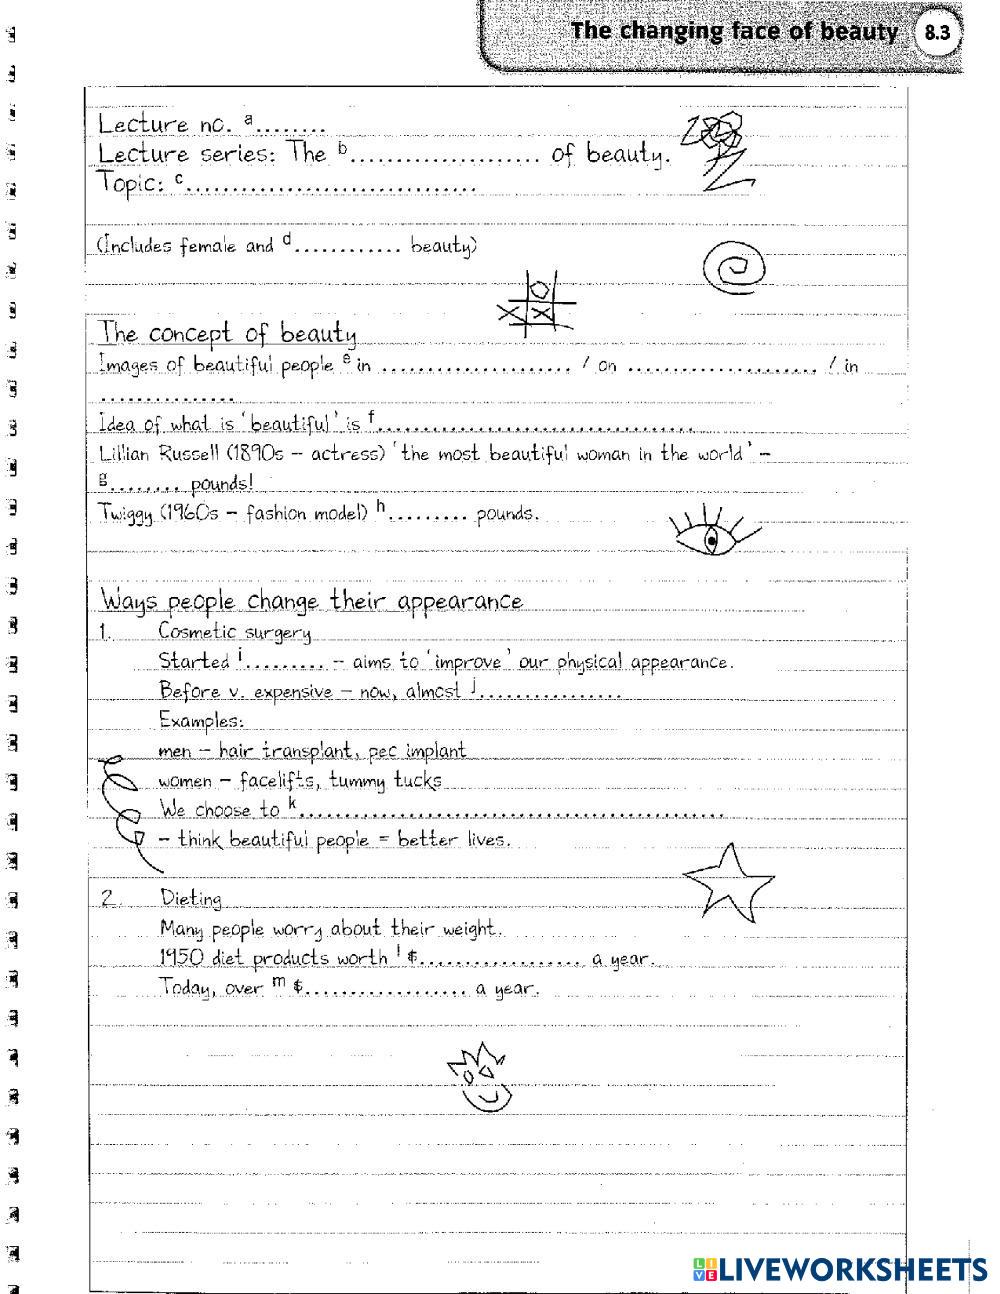 The changing face of beauty 8.3
Lecture no. a........
Lecture series: The b.................... of beauty.
Topic: c...............................
(Includes female and d............ beauty)
The concept of beauty
Images of beautiful people e in ..................... / on ..................... / in
...............
Idea of what is 'beautiful' is f..................................
Lillian Russell (1890s – actress) 'the most beautiful woman in the world' –
g........ pounds!
Twiggy (1960s – fashion model) h......... pounds.
Ways people change their appearance
1. Cosmetic surgery
Started i......... – aims to 'improve' our physical appearance.
Before v. expensive – now, almost j................
Examples:
men – hair transplant, pec implant
women – facelifts, tummy tucks
We choose to k..............................................
– think beautiful people = better lives.
2. Dieting
Many people worry about their weight.
1950 diet products worth l $.................. a year.
Today, over m $.................. a year.
LIVE LIVEWORKSHEETS